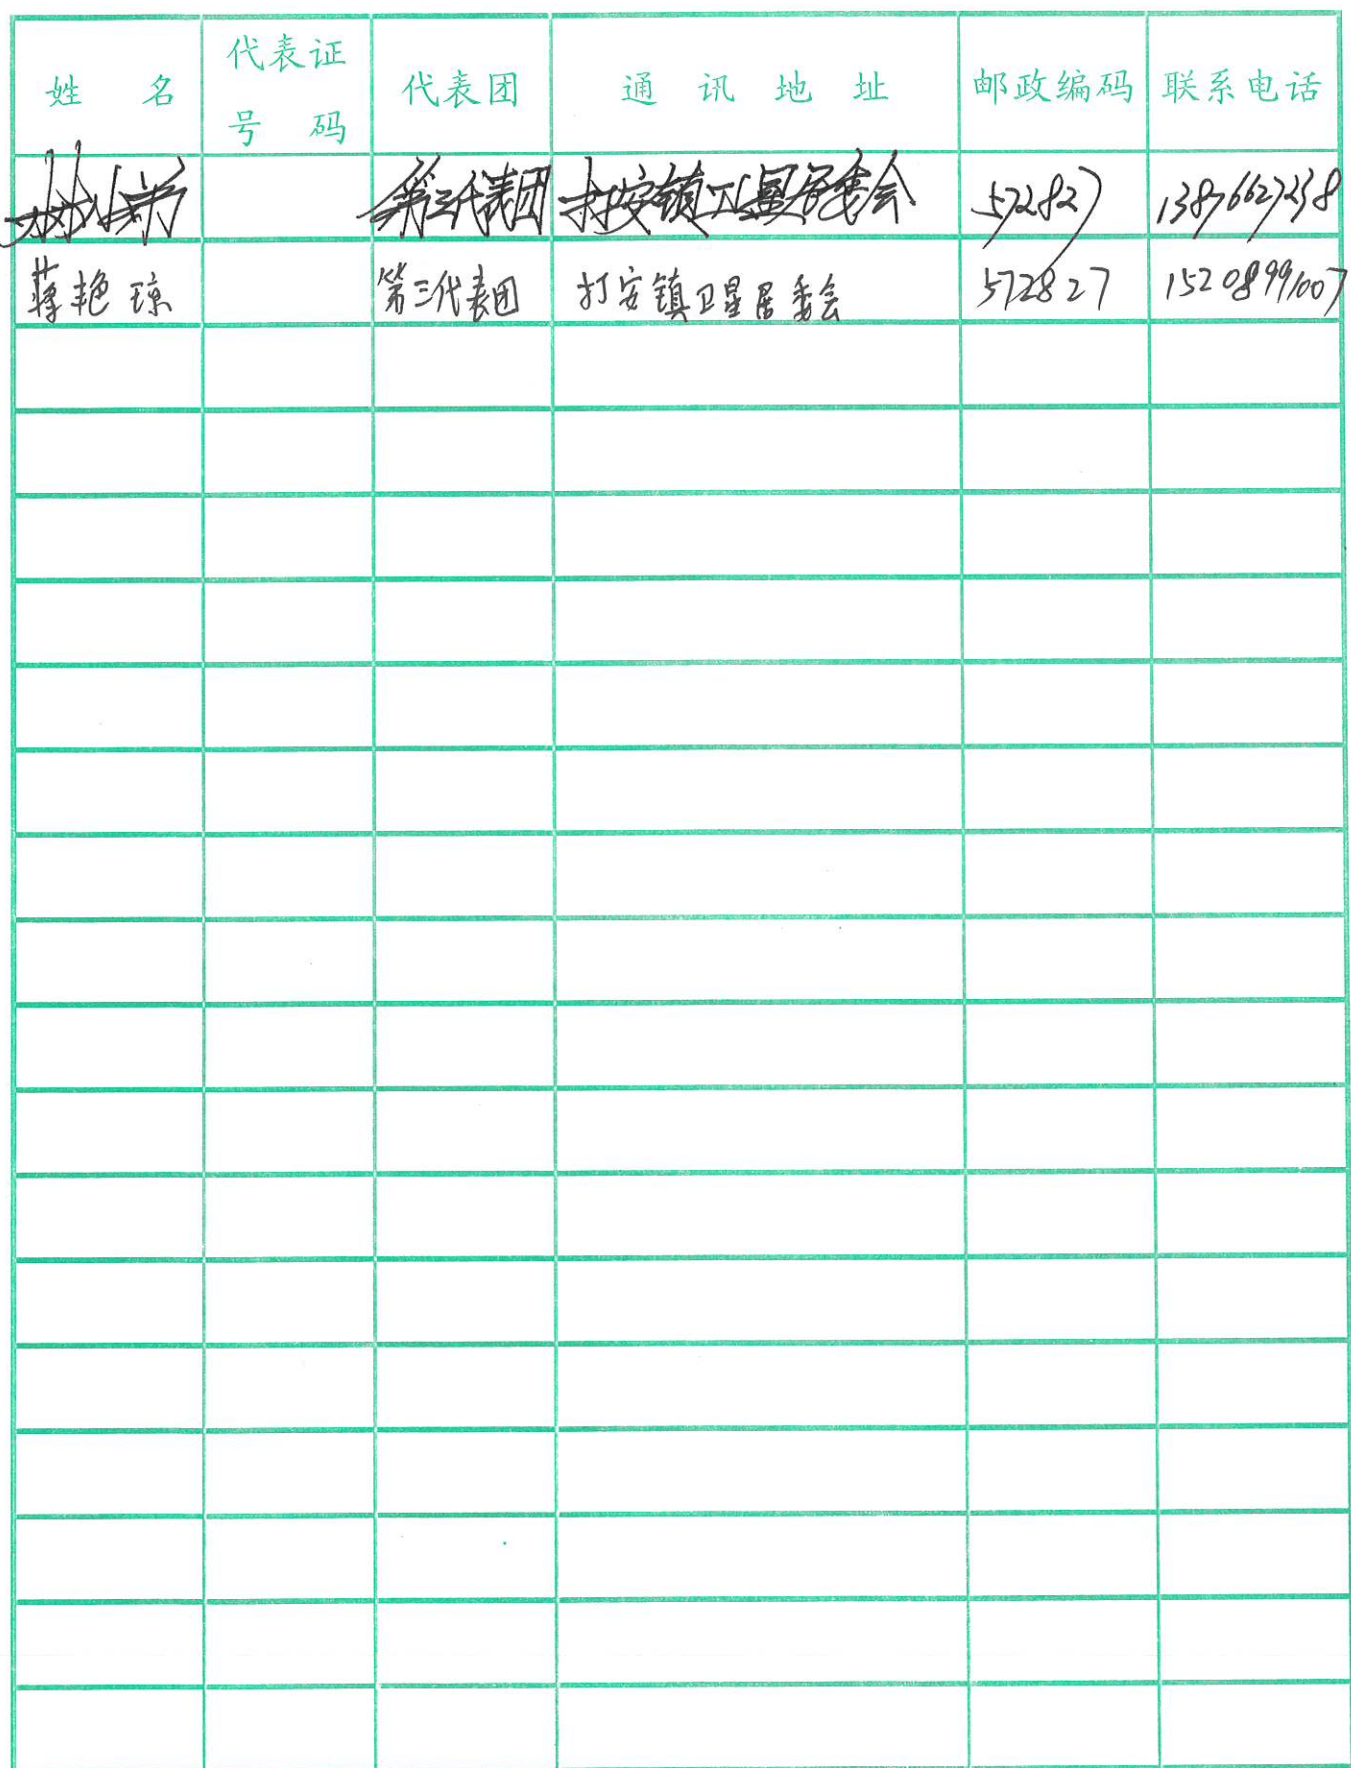 姓 名 代表证号 码 代表团 通 讯 地 址 邮政编码 联系电话
第三代表团 打安镇卫星居委会 572827 13876627238
蒋艳琼 第三代表团 打安镇卫星居委会 572827 15208991007